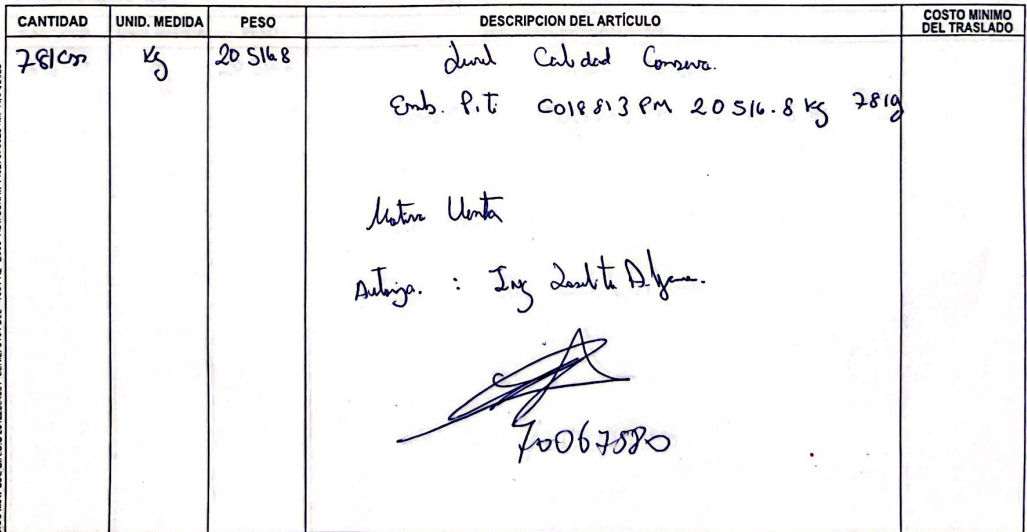 CANTIDAD UNID. MEDIDA PESO DESCRIPCION DEL ARTÍCULO COSTO MINIMO DEL TRASLADO
781 Kg 20 516.8 Jurel Calidad Conserva.
Emb. P.T. C018813 PM 20 516.8 Kg 781
Motivo Venta
Autoriza. : Ing
70067580